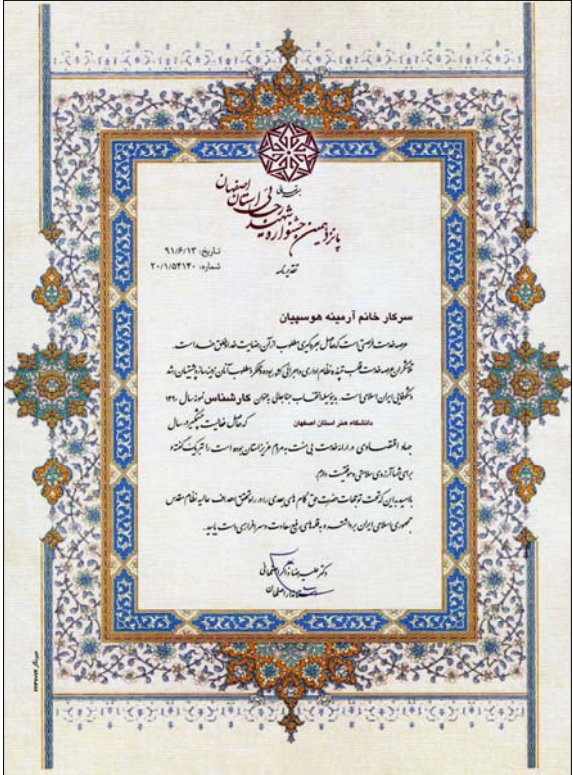 پانزدهمین جشنواره شهید رجائی استان اصفهان
تاریخ: ۹۱/۶/۱۳
شماره: ۲۰/۱/۵۴۱۴۰
تقدیرنامه
سرکار خانم آرمینه هوسپیان
عرصه خدمت فرصتی است که حاصل بهره‌گیری مطلوب از آن رضایت خدا و خلق خداست.
تلاشگران عرصه خدمت قلب تپنده نظام اداری و اجرائی کشور بوده و عملکرد مطلوب آنان زمینه‌ساز پشتیبان رشد
و شکوفایی ایران اسلامی است. بدینوسیله انتخاب جنابعالی بعنوان کارشناس نمونه سال ۱۳۹۰
دانشگاه هنر استان اصفهان که حاصل فعالیت چشمگیر در سال
جهاد اقتصادی و ارائه خدمت بی‌منت به مردم عزیز استان بوده است را تبریک گفته و
برای شما آرزوی سلامتی و موفقیت دارم.
با امید به این که تحت توجهات حضرت حق گام های بعدی را در راه تحقق اهداف عالیه نظام مقدس
جمهوری اسلامی ایران برداشته و به قله‌های رفیع سعادت و سرافرازی دست یابید.
دکتر علیرضا ذاکر اصفهانی
استاندار اصفهان